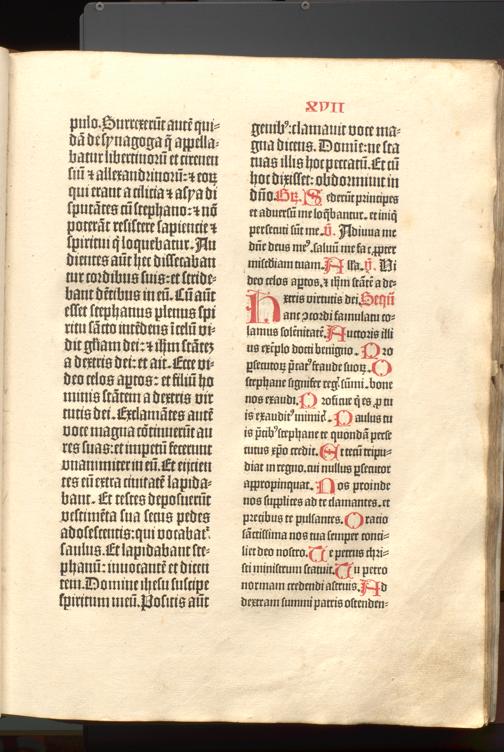 XVII
pulo. Surrexerūt autē qui-
dā de synagoga q̄ appella-
batur libertinorū et cirenen
siū ⁊ allexandrinorū: ⁊ eorꝫ
qui erant a cilicia ⁊ asya di
sputātes cū stephano: ⁊ nō
poterāt resistere sapientie ⁊
spiritui q̇ loquebatur. Au
dientes aūt hec dissecaban
tur cordibus suis: et stride-
bant dētibus in eū. Cū aūt
esset stephanus plenus spi
ritu sācto intēdens ī celū vi-
dit glīam dei: ⁊ ihm stātez
a dextris dei: et ait. Ecce vi-
deo celos aꝑtos: et filiū ho
minis stātem a dextris vir
tutis dei. Exclamātes autē
voce magna cōtinuerūt au
res suas: et impetū fecerunt
vnanimiter in eū. Et eijcien
tes eū extra ciuitatē lapida-
bant. Et testes deposuerūt
vestimēta sua secus pedes
adolescentis: qui vocabat᷑
saulus. Et lapidabant ste-
phanū: inuocantē et dicen
tem. Domine ihesu suscipe
spiritum meū. Positis aūt
genibꝰ: clamauit voce ma-
gna dicens. Domīe: ne sta
tuas illis hoc peccatū. Et cū
hoc dixisset: obdormiuit in
dn̄o. Gr̄. Sederūt principes
et aduersū me loq̄bantur. et iniq̇
persecuti sūt me. v̄. Adiuua me
dn̄e deus meꝰ. saluū me fac ꝓpter
misc̄diam tuam. Alla. v̄. Vi
deo celos aꝑtos. ⁊ ihm stātē a de-
xtris virtutis dei. Sequē
Hanc ꝯcordi famulatu co-
lamus solēnitatē. Auctoris illi
us exēplo docti benigno. Pro
ꝑsecutorꝫ p̄cātꝰ fraude suorꝫ. O
stephane signifer regꝭ sūmi. bone
nos exaudi. Proficue q̇ es ꝓ tu
is exauditꝰ inimicꝭ. Paulus tu
is p̄cibꝰ stephane te quondā perse
cutus xp̄o credit. Et tecū tripu-
diat in regno. cui nullus ꝑsecutor
appropinquat. Nos proinde
nos supplices ad te clamantes. et
precibus te pulsantes. Oratio
sāctissima nos tua semper conci-
liet deo nostro. Te petrus chri-
sti ministrum statuit. Tu petro
normam credendi astruis. Ad
dextram summi patris ostenden-